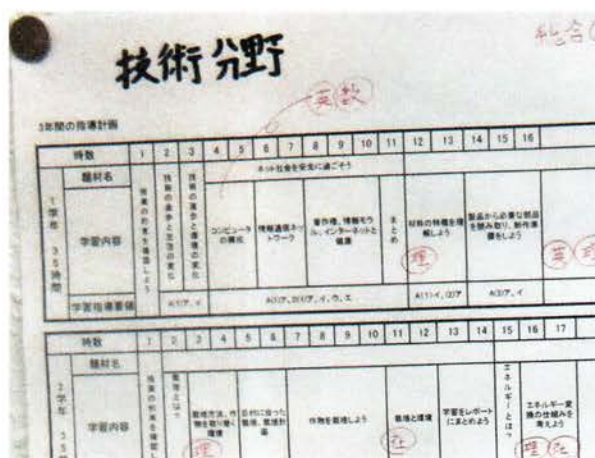 技術分野
総合
英 数
3年間の指導計画
時数 1 2 3 4 5 6 7 8 9 10 11 12 13 14 15 16
題材名 ネット社会を安全に過ごそう
1学年 35時間
学習内容
授業の約束を確認しよう
技術の進歩と生活の変化
技術の進歩と環境の変化
コンピュータの構成
情報通信ネットワーク
著作権、情報モラル、インターネットと健康
まとめ
材料の特徴を理解しよう
製品から必要な部品を読み取り、製作準備をしよう
理
英
学習指導要領 A(1)ア、イ
A(1)イ、(2)ア
A(3)ア、イ
時数 1 2 3 4 5 6 7 8 9 10 11 12 13 14 15 16 17
題材名
2学年 35時
学習内容
授業の約束を確認
栽培とは?
栽培方法、作物を取り巻く環境
目的に合った栽培、栽培計画
作物を栽培しよう
栽培と環境
学習をレポートにまとめよう
エネルギーとは?
エネルギー変換の仕組みを考えよう
理
社
理 社